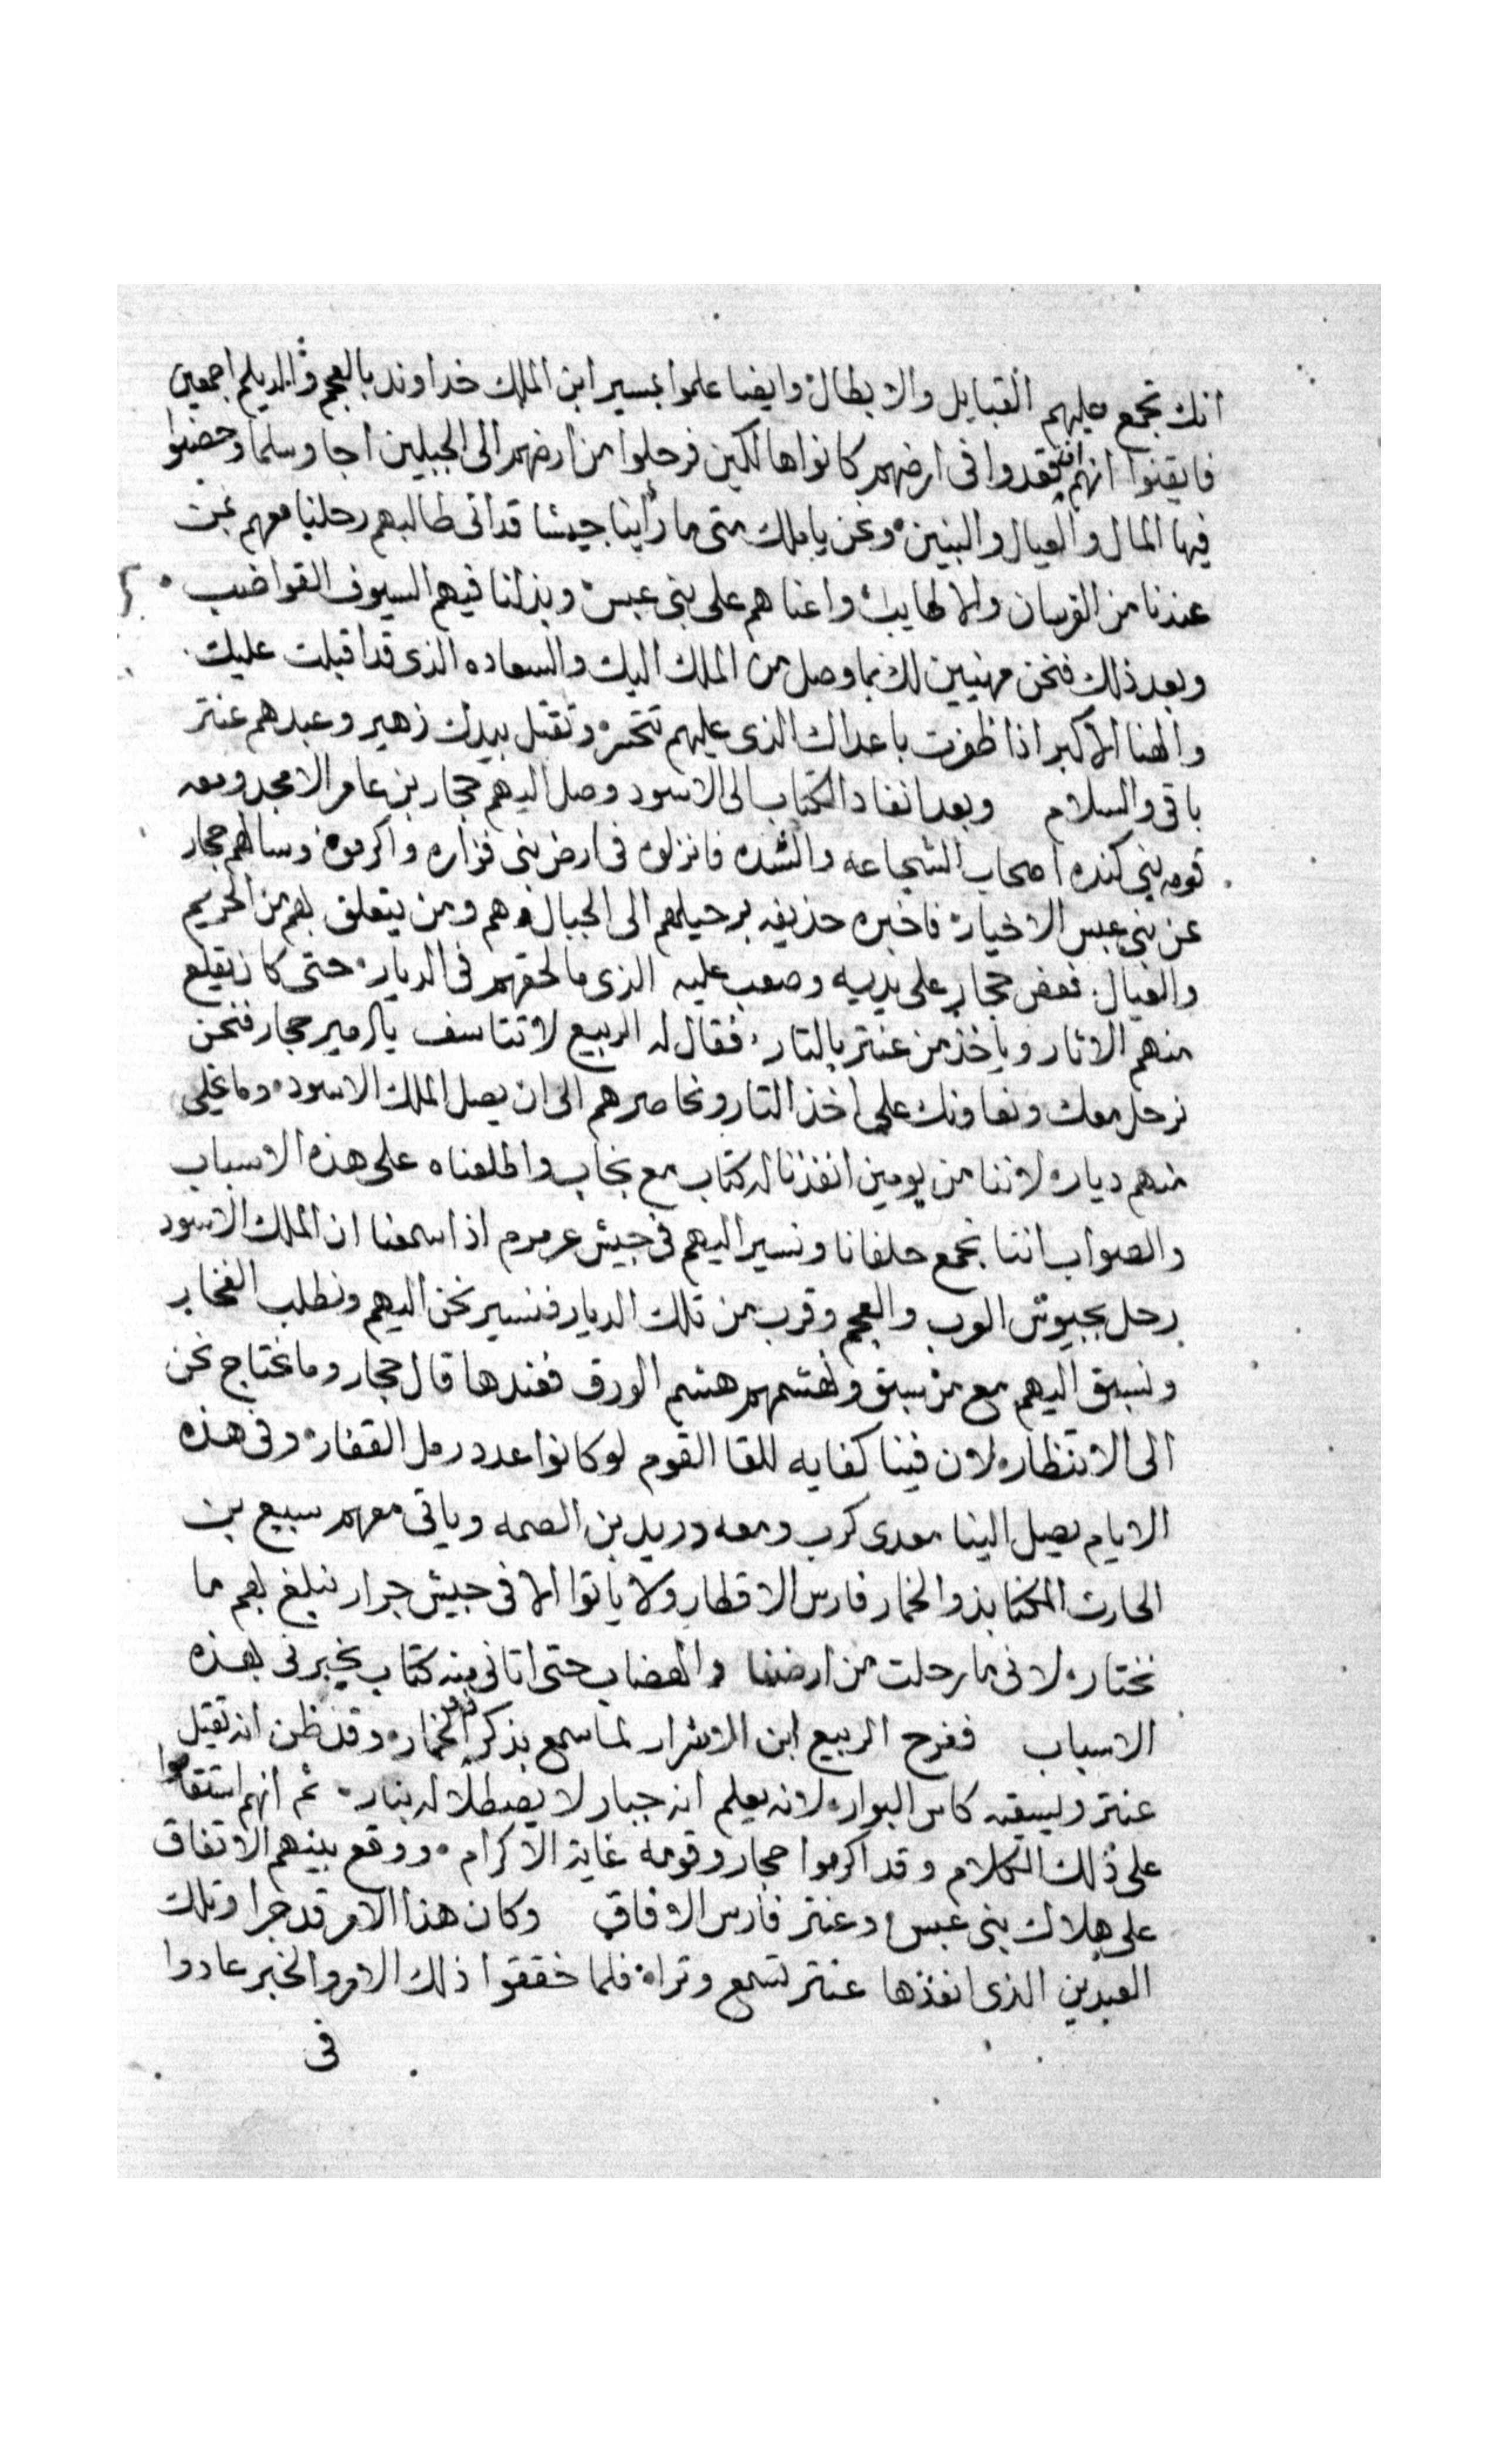 انك تجمع عليهم القبايل والابطال وايضا علموا بمسير ابن الملك خداوند بالعجم والديلم اجمعين
فايقنوا انهم ان قعدوا فى ارضهم كانوا هالكين فرحلوا من ارضهم الى الجبلين اجا وسلما وحصنوا
فيها المال والعيال والبنين ونحن يا ملك متى ما رأينا جيشا قد اتى طالبهم رحلنا معهم بمن
عندنا من الفرسان والاطايب واعناهم على بنى عبس وبذلنا فيهم السيوف القواضب
وبعد ذلك فنحن مهنيين لك بما وصل من الملك اليك والسعاده الذى قد اقبلت عليك
والهنا الاكبر اذا ظفرت باعداك الذى عليهم تتحسر وتقتل بيدك زهير وعبدهم عنتر
باقى والسلام وبعد انفاد الكتاب الى الاسود وصل اليهم حجار بن عامر الامجد ومعه
قومه بنى كنده اصحاب الشجاعه والشده فانزلوه فى ارض بنى فزاره واكرموه وسالهم حجار
عن بنى عبس الاخيار فاخبره حذيفه برحيلهم الى الجبال هم ومن يتعلق بهم من الحريم
والعيال فعض حجار على يديه وصعب عليه الذى ما لحقهم فى الديار حتى كان يقلع
منهم الاثار وياخذ من عنتر بالتار فقال له الربيع لا تتاسف يا امير حجار فنحن
نرحل معك ونعاونك على اخذ التار ونحاصرهم الى ان يصل الملك الاسود وما يخلى
منهم ديار لاننا من يومين انفذنا له كتاب مع نجاب واطلعناه على هذه الاسباب
والصواب اننا نجمع حلفانا ونسير اليهم فى جيش عرمرم اذا سمعنا ان الملك الاسود
رحل بجيوش العرب والعجم وقرب من تلك الديار فنسير نحن اليهم ونطلب الفخار
ونسبق اليهم مع من سبق ونهشمهم هشم الورق فعندها قال حجار وما نحتاج نحن
الى الانتظار لان فينا كفايه للقا القوم لو كانوا عدد رمل القفار وفى هذه
الايام يصل الينا معدى كرب ومعه دريد بن الصمه وياتى معهم سبيع بن
الحارث المكنا بذو الخمار فارس الاقطار ولا ياتوا الا فى جيش جرار نبلغ بهم ما
نختار لانى ما رحلت من ارضنا والهضاب حتى اتانى منه كتاب يخبرنى بهذه
الاسباب ففرح الربيع ابن الاشرار لما سمع بذكر ذو الخمار وقد ظن انه يقتل
عنتر ويسقيه كاس البوار لانه يعلم انه جبار لا يصطلا له بنار ثم انهم استقاموا
على ذلك الكلام وقد اكرموا حجار وقومه غاية الاكرام ووقع بينهم الاتفاق
على هلاك بنى عبس وعنتر فارس الافاق وكان هذا الامر قد جرا وتلك
العبدين الذى انفذها عنتر تسمع وترا فلما حققوا ذلك الامر والخبر عادوا
فى